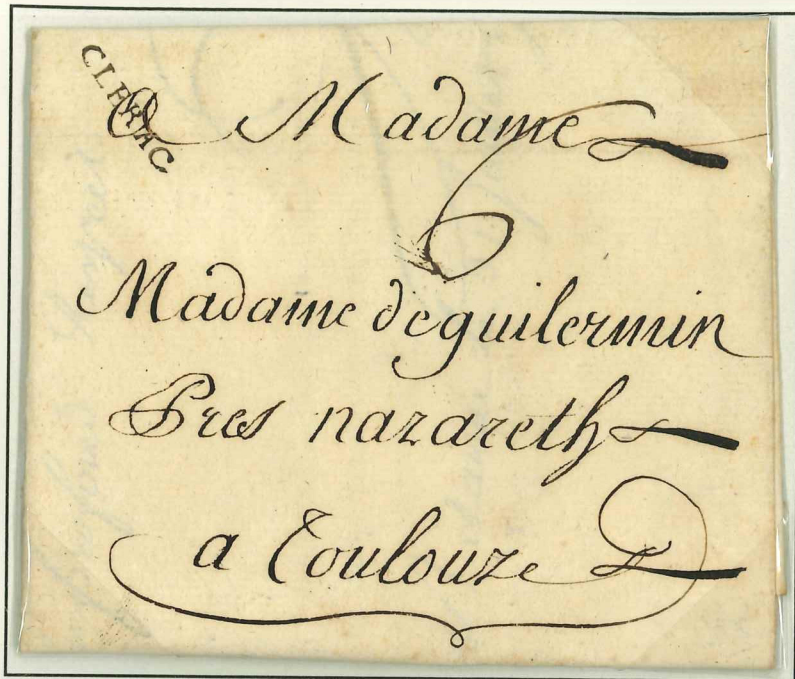 CLERAC
A Madame
6
Madame deguilermin
Pres nazareth
a Toulouze